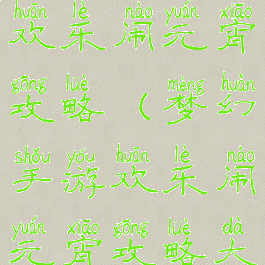 huān lè nào yuán xiāo
欢乐闹元宵
gōng luè mèng huàn
攻略（梦幻
shǒu yóu huān lè nào
手游欢乐闹
yuán xiāo gōng luè dà
元宵攻略大